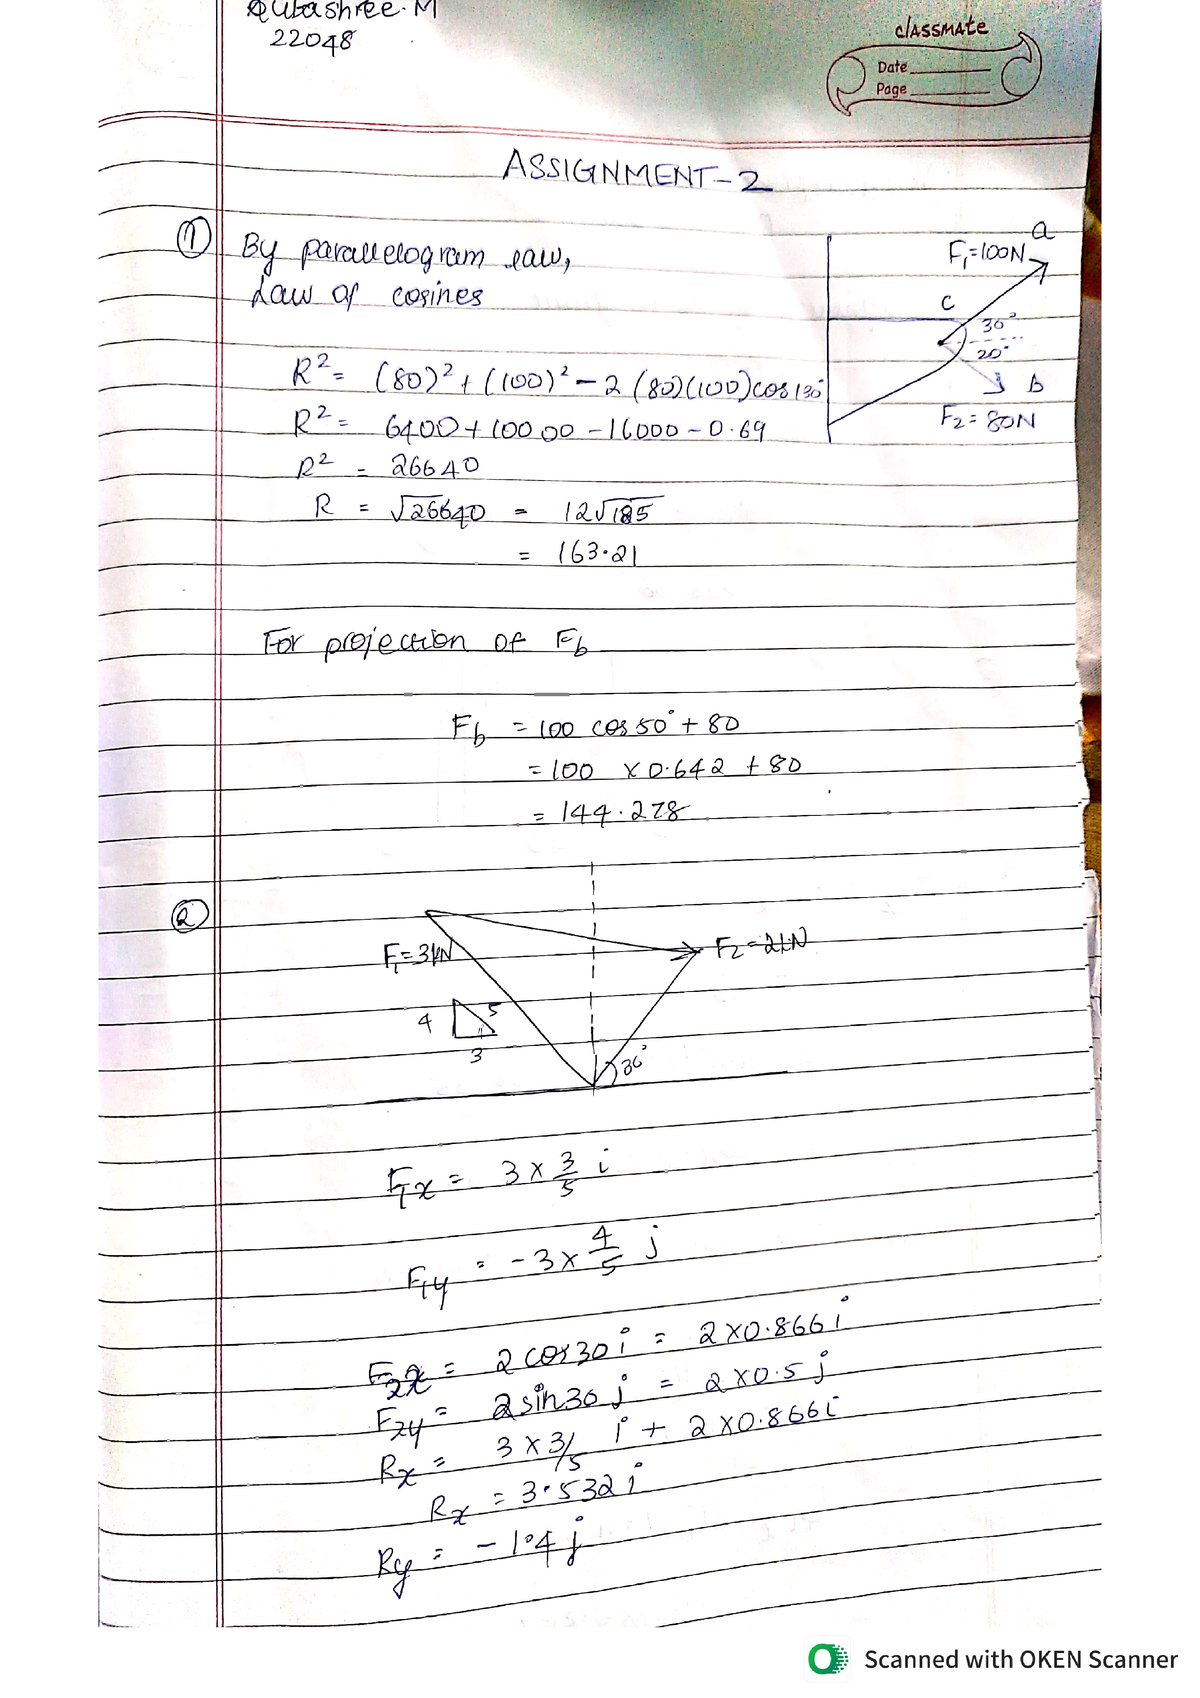 22048
classmate
Date
Page
ASSIGNMENT-2
① By parallelogram law,
Law of cosines
a
F₁=100N
C
30°
20°
B
F₂=80N
R² = (80)²+(100)²-2(80)(100)cos130°
R² = 6400+10000-16000-0.69
R² = 26640
R = √26640 = 12√185
= 163.21
For projection of Fb
Fb = 100 cos50°+80
= 100 x 0.642 +80
= 144.278
②
F₁=3kN
F₂=2kN
4
5
3
30°
F₁x = 3 x 3/5 i
F₁y = -3x 4/5 j
F₂x = 2 cos30 i = 2x0.866 i
F₂y = 2sin30 j = 2x0.5 j
Rx = 3x3/5 i + 2x0.866i
Rx = 3.532 i
Ry = -1.4 j
Scanned with OKEN Scanner